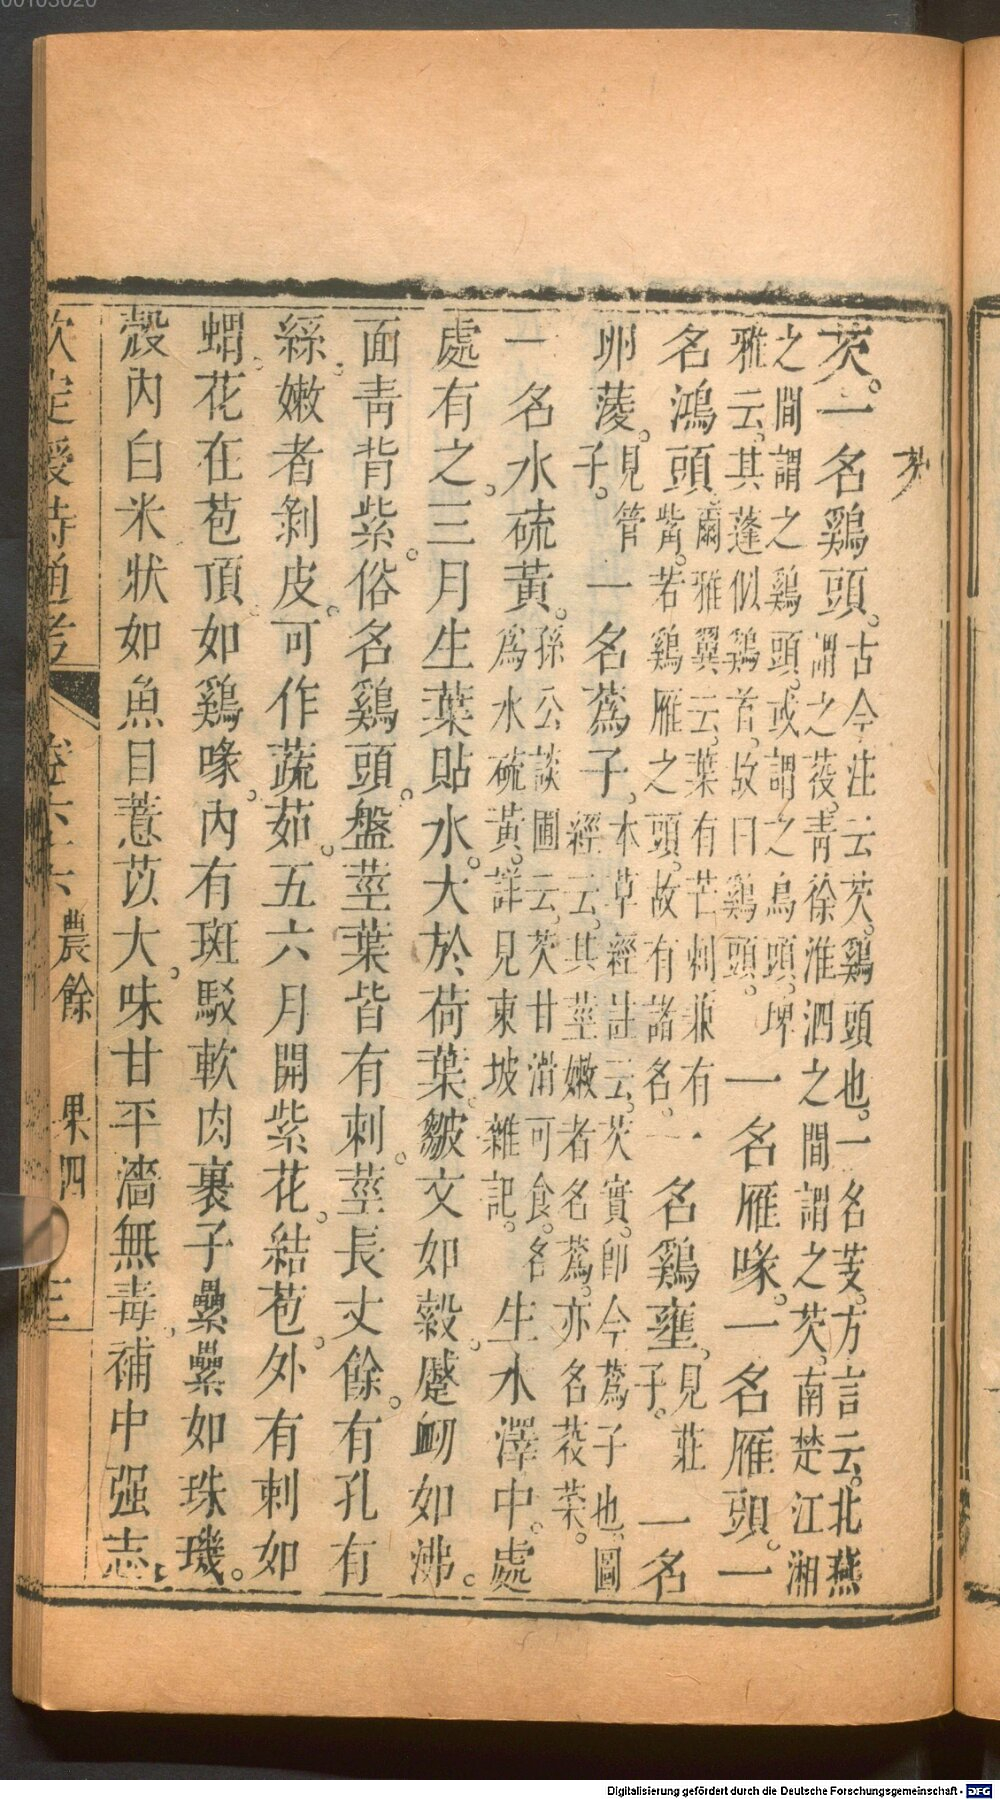 芡
芡。一名鷄頭。古今注云芡。鷄頭也。一名芰。方言云。北燕
謂之䓈。青徐淮泗之間謂之芡。南楚江湘
之間謂之鷄頭。或謂之烏頭。埤
雅云。其蓬似鷄首。故曰鷄頭。
一名雁喙。一名雁頭。一
名鴻頭。爾雅翼云。葉有芒刺。兼有
觜。若鷄雁之頭。故有諸名。
一名鷄壅。見莊
子。
一名
卵蔆。見管
子。
一名蔿子。本草經註云。芡實。卽今蔿子也。圖
經云。其莖嫩者名蔿。亦名䓈菜。
一名水硫黃。孫公談圃云。芡甘滑可食。名
爲水硫黃。詳見東坡雜記。
生水澤中。處
處有之。三月生葉貼水。大於荷葉。皺文如縠。蹙衂如沸。
面靑背紫。俗名鷄頭盤。莖葉皆有刺。莖長丈餘。有孔有
絲。嫩者剝皮。可作蔬茹。五六月開紫花。結苞。外有刺如
蝟。花在苞頂。如鷄喙。內有斑駁軟肉裹子。纍纍如珠璣。
殼內白米狀如魚目薏苡大。味甘平濇無毒。補中强志。
欽定授時通考 卷六六 農餘 果四 三
Digitalisierung gefördert durch die Deutsche Forschungsgemeinschaft - DFG